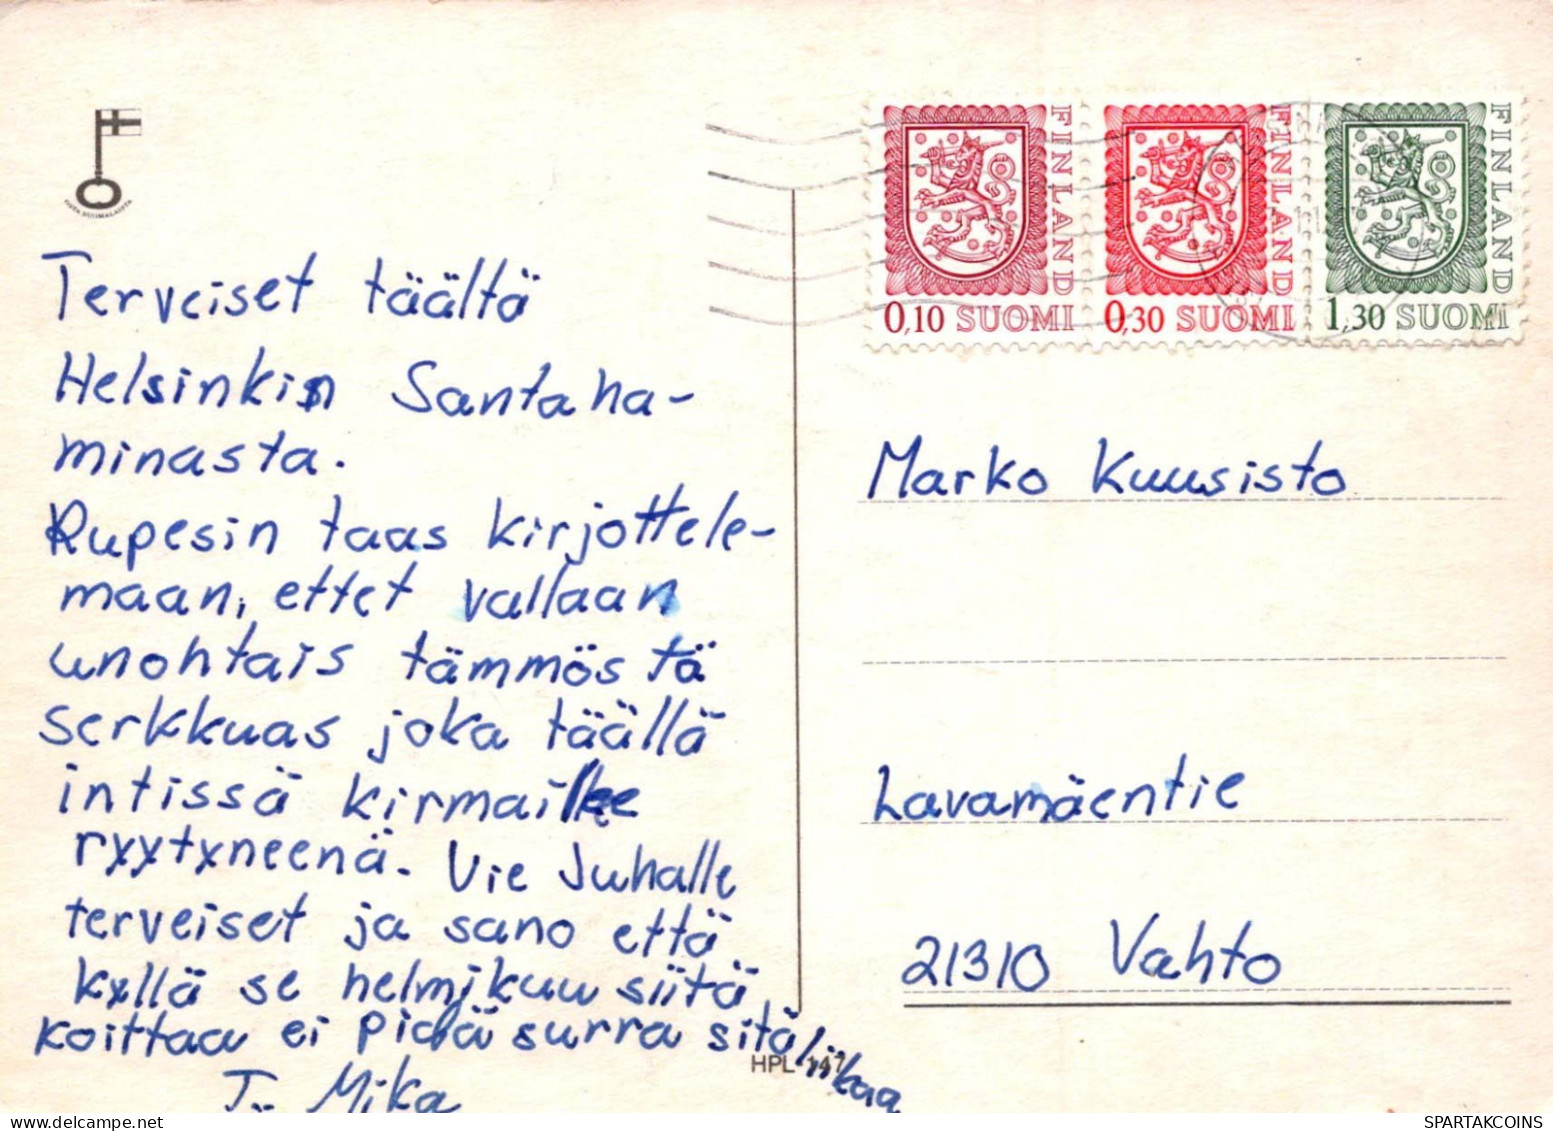 FINLAND
0,10 SUOMI
FINLAND
0,30 SUOMI
FINLAND
1,30 SUOMI
Terveiset täältä
Helsinkin Santaha-
minasta.
Rupesin taas kirjottele-
maan, ettet vallaan
unohtais tämmöstä
serkkuas joka täällä
intissä kirmailee
ryytyneenä. Vie Juhalle
terveiset ja sano että
kyllä se helmikuu siitä
koittaa ei pidä surra sitä liikaa
T: Mika
Marko Kuusisto
Lavamäentie
21310 Vahto
HPL 147
SPARTAKCOINS.COM